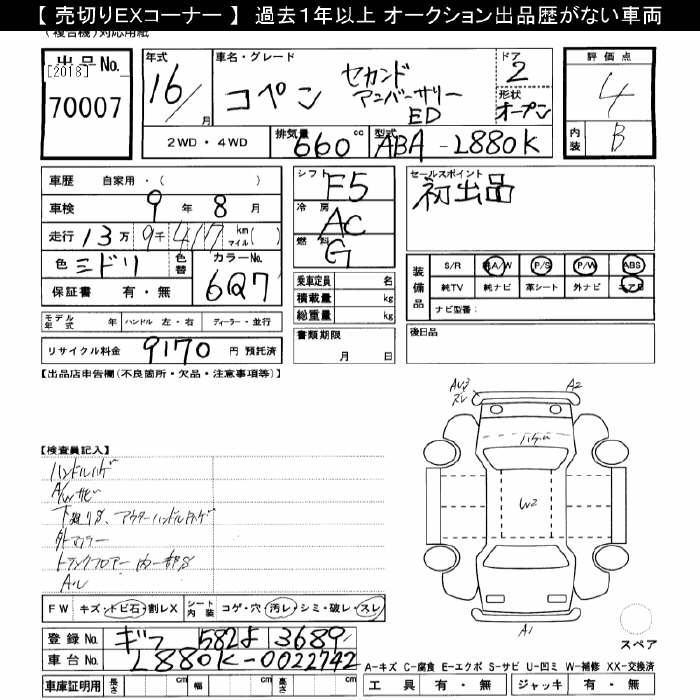 【 売切りEXコーナー 】 過去1年以上 オークション出品歴がない車両
(複合機)対応用紙
出品No.
[2018]
70007
年式
16/
月
車名・グレード
コペン セカンド
アニバーサリー
ED
ドア
2
形状
オープン
評価点
4
内装
B
2WD・4WD
排気量
660
cc
型式
ABA - L880K
車歴 自家用・( )
車検 9 年 8 月
走行 13万 9千 417 km マイル( )
色 ミドリ
色替
カラーNo.
6Q7
保証書 有・無
モデル年式 年 ハンドル 左・右 ディーラー・並行
リサイクル料金 9170 円 預託済
シフト
F5
冷房
AC
燃料
G
乗車定員 名
積載量 kg
総重量 kg
書類期限
月 日
セールスポイント
初出品
装備品
S/R 純A/W P/S P/W ABS
純TV 純ナビ 革シート 外ナビ エアB
ナビ型番:
後日品
【出品店申告欄(不良箇所・欠品・注意事項等)】
【検査員記入】
ハンドルハゲ
A/Wサビ
下廻りS、アウターハンドルハゲ
外マフラー
トランクフロアー内一部S
AウL
FW キズ・トビ石・割レX
シート内装 コゲ・穴・汚レ・シミ・破レ・スレ
登録No. ギフ 582よ 3689
車台No. L880K-0022742
車庫証明用 長さ cm 幅 cm 高さ cm
A2
W2
A1
スペア
A-キズ C-腐食 E-エクボ S-サビ U-凹ミ W-補修 XX-交換済
工具 有・無 ジャッキ 有・無